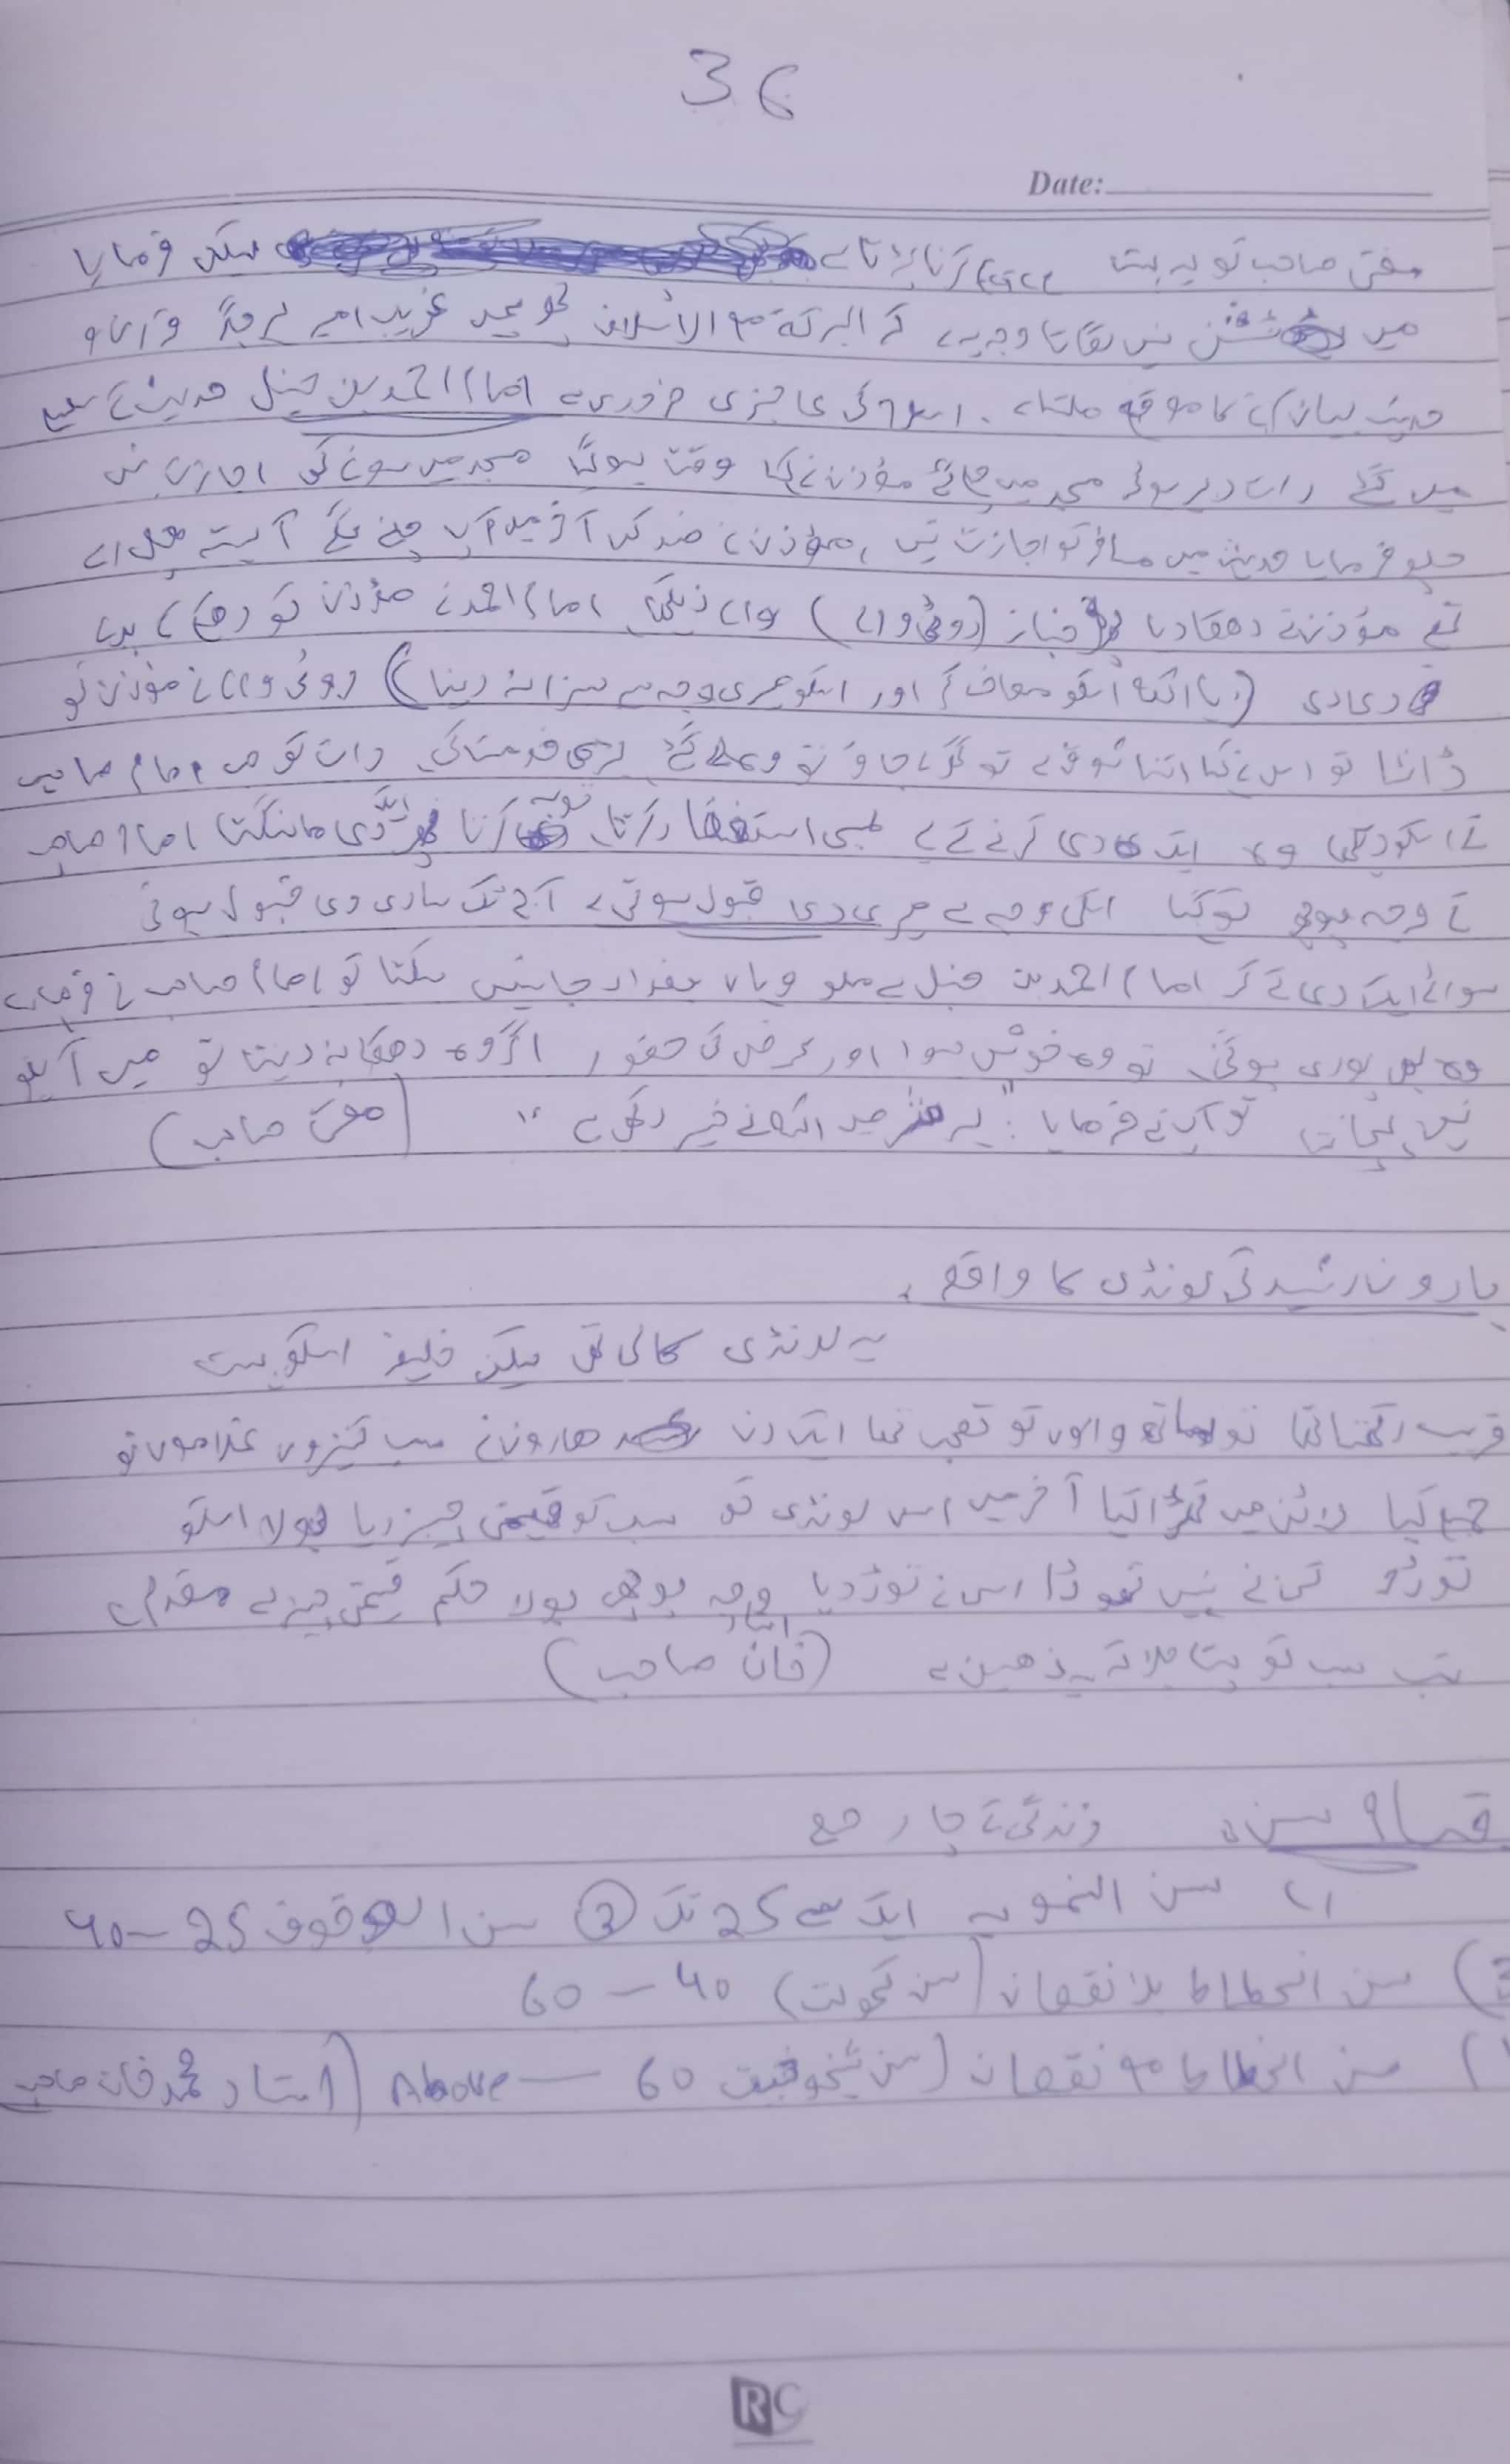 36
Date:
مفتی صاحب تو یہ بہت کرنا پڑتا ہے لیکن فرمایا
میں نہیں تھکتا وجہ یہ ہے کہ البرکۃ مع الاسلاف مجھے غریب امیر ہر جگہ قرآن و
حدیث بیان کرنے کا موقع ملتا ہے۔ اسلاف کی عاجزی ضروری ہے امام احمد بن حنبل حدیث کے
میں گئے رات دیر ہوئی مسجد میں گئے مؤذن نے کہا وقت ہو گیا مسجد میں سونے کی اجازت نہیں
فرمایا حدیث میں مسافر کو اجازت ہے، مؤذن نے ضد کی آخر میں آپ چلنے لگے آہستہ چل رہے
تھے مؤذن نے دھکا دیا خباز (روٹی والے) نے دیکھا امام احمد نے مؤذن کو دھکے کے بدلے
دعا دی (یا اللہ اسکو معاف کر اور اسکو میری وجہ سے سزا نہ دینا) روٹی والے نے مؤذن کو
ڈانٹا تو اس نے کہا اتنا شوق ہے تو گھر لے جاؤ تو وہ لے گئے بڑی خدمت کی رات کو جب امام صاحب
نے اسکو دیکھا وہ ایک دعا کرنے کے لیے لمبی استغفار کرتا، توبہ کرتا پھر دعا مانگتا امام صاحب
نے وجہ پوچھی تو کہا اسکی وجہ سے میری دعا قبول ہوتی ہے آج تک ساری دعا قبول ہوئی
سوائے ایک دعا کے کہ امام احمد بن حنبل سے ملو وہاں بغداد جا نہیں سکتا تو امام صاحب نے فرمایا
وہ بھی پوری ہو گئی۔ تو وہ خوش ہوا اور عرض کی حضور اگر وہ دھکا نہ دیتا تو میں آپکو
نہیں پہچانتا تو آپ نے فرمایا: "ہر شر میں اللہ نے خیر رکھی ہے" (مفتی صاحب)
ہارون رشید کی لونڈی کا واقعہ
یہ لونڈی کالی تھی لیکن خلیفہ اسکو بہت
قریب رکھتا تھا تو ساتھ والوں کو تعجب تھا ایک دن ھارون نے سب کنیزوں غلاموں کو
جمع کیا لائن میں کھڑا کیا آخر میں اس لونڈی کو سب کو قیمتی چیز دیا بولا اسکو
توڑو کسی نے نہیں توڑا اس نے توڑ دیا وجہ پوچھی بولا حکم قیمتی چیز سے مقدم ہے
تب سب کو پتا چلا کہ یہ ذھین ہے (استاد خان صاحب)
اقسام سن زندگی کے چار حصے
1) سن النمو یہ ایک سے 25 تک ② سن الوقوف 25-40
3) سن انحطاط بلا نقصان (سن کہولت) 40 - 60
سن انحطاط مع نقصان (سن شیخوخیت 60 — Above (استاد محمد خان صاحب
RC